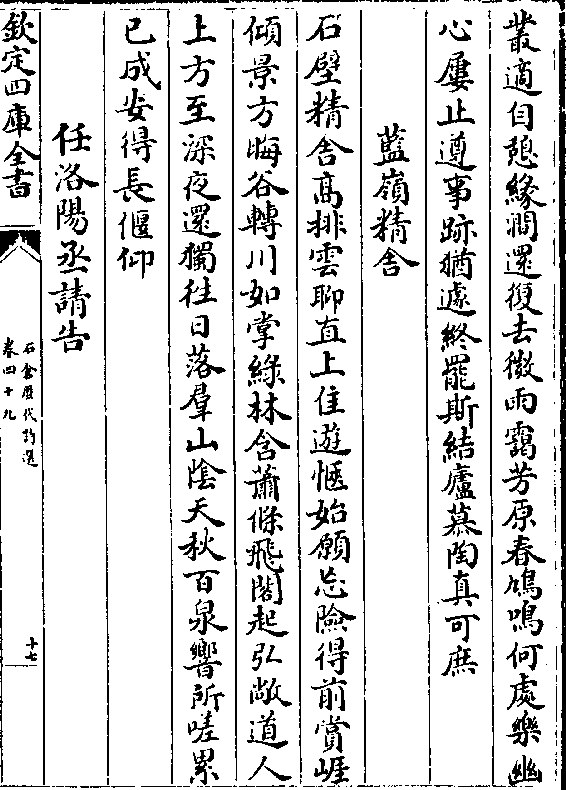 叢適自憩緣澗還復去微雨靄芳原春鳩鳴何處樂幽
心屢止遵事跡猶遽終罷斯結廬慕陶真可庶
藍嶺精舍
石壁精舍高排雲聊直上佳遊愜始願忘險得前賞崖
傾景方晦谷轉川如掌綠林含蕭條飛閣起弘敞道人
上方至深夜還獨往日落羣山陰天秋百泉響所嗟累
已成安得長偃仰
任洛陽丞請告
欽定四庫全書
石倉歷代詩選
卷四十九
十七